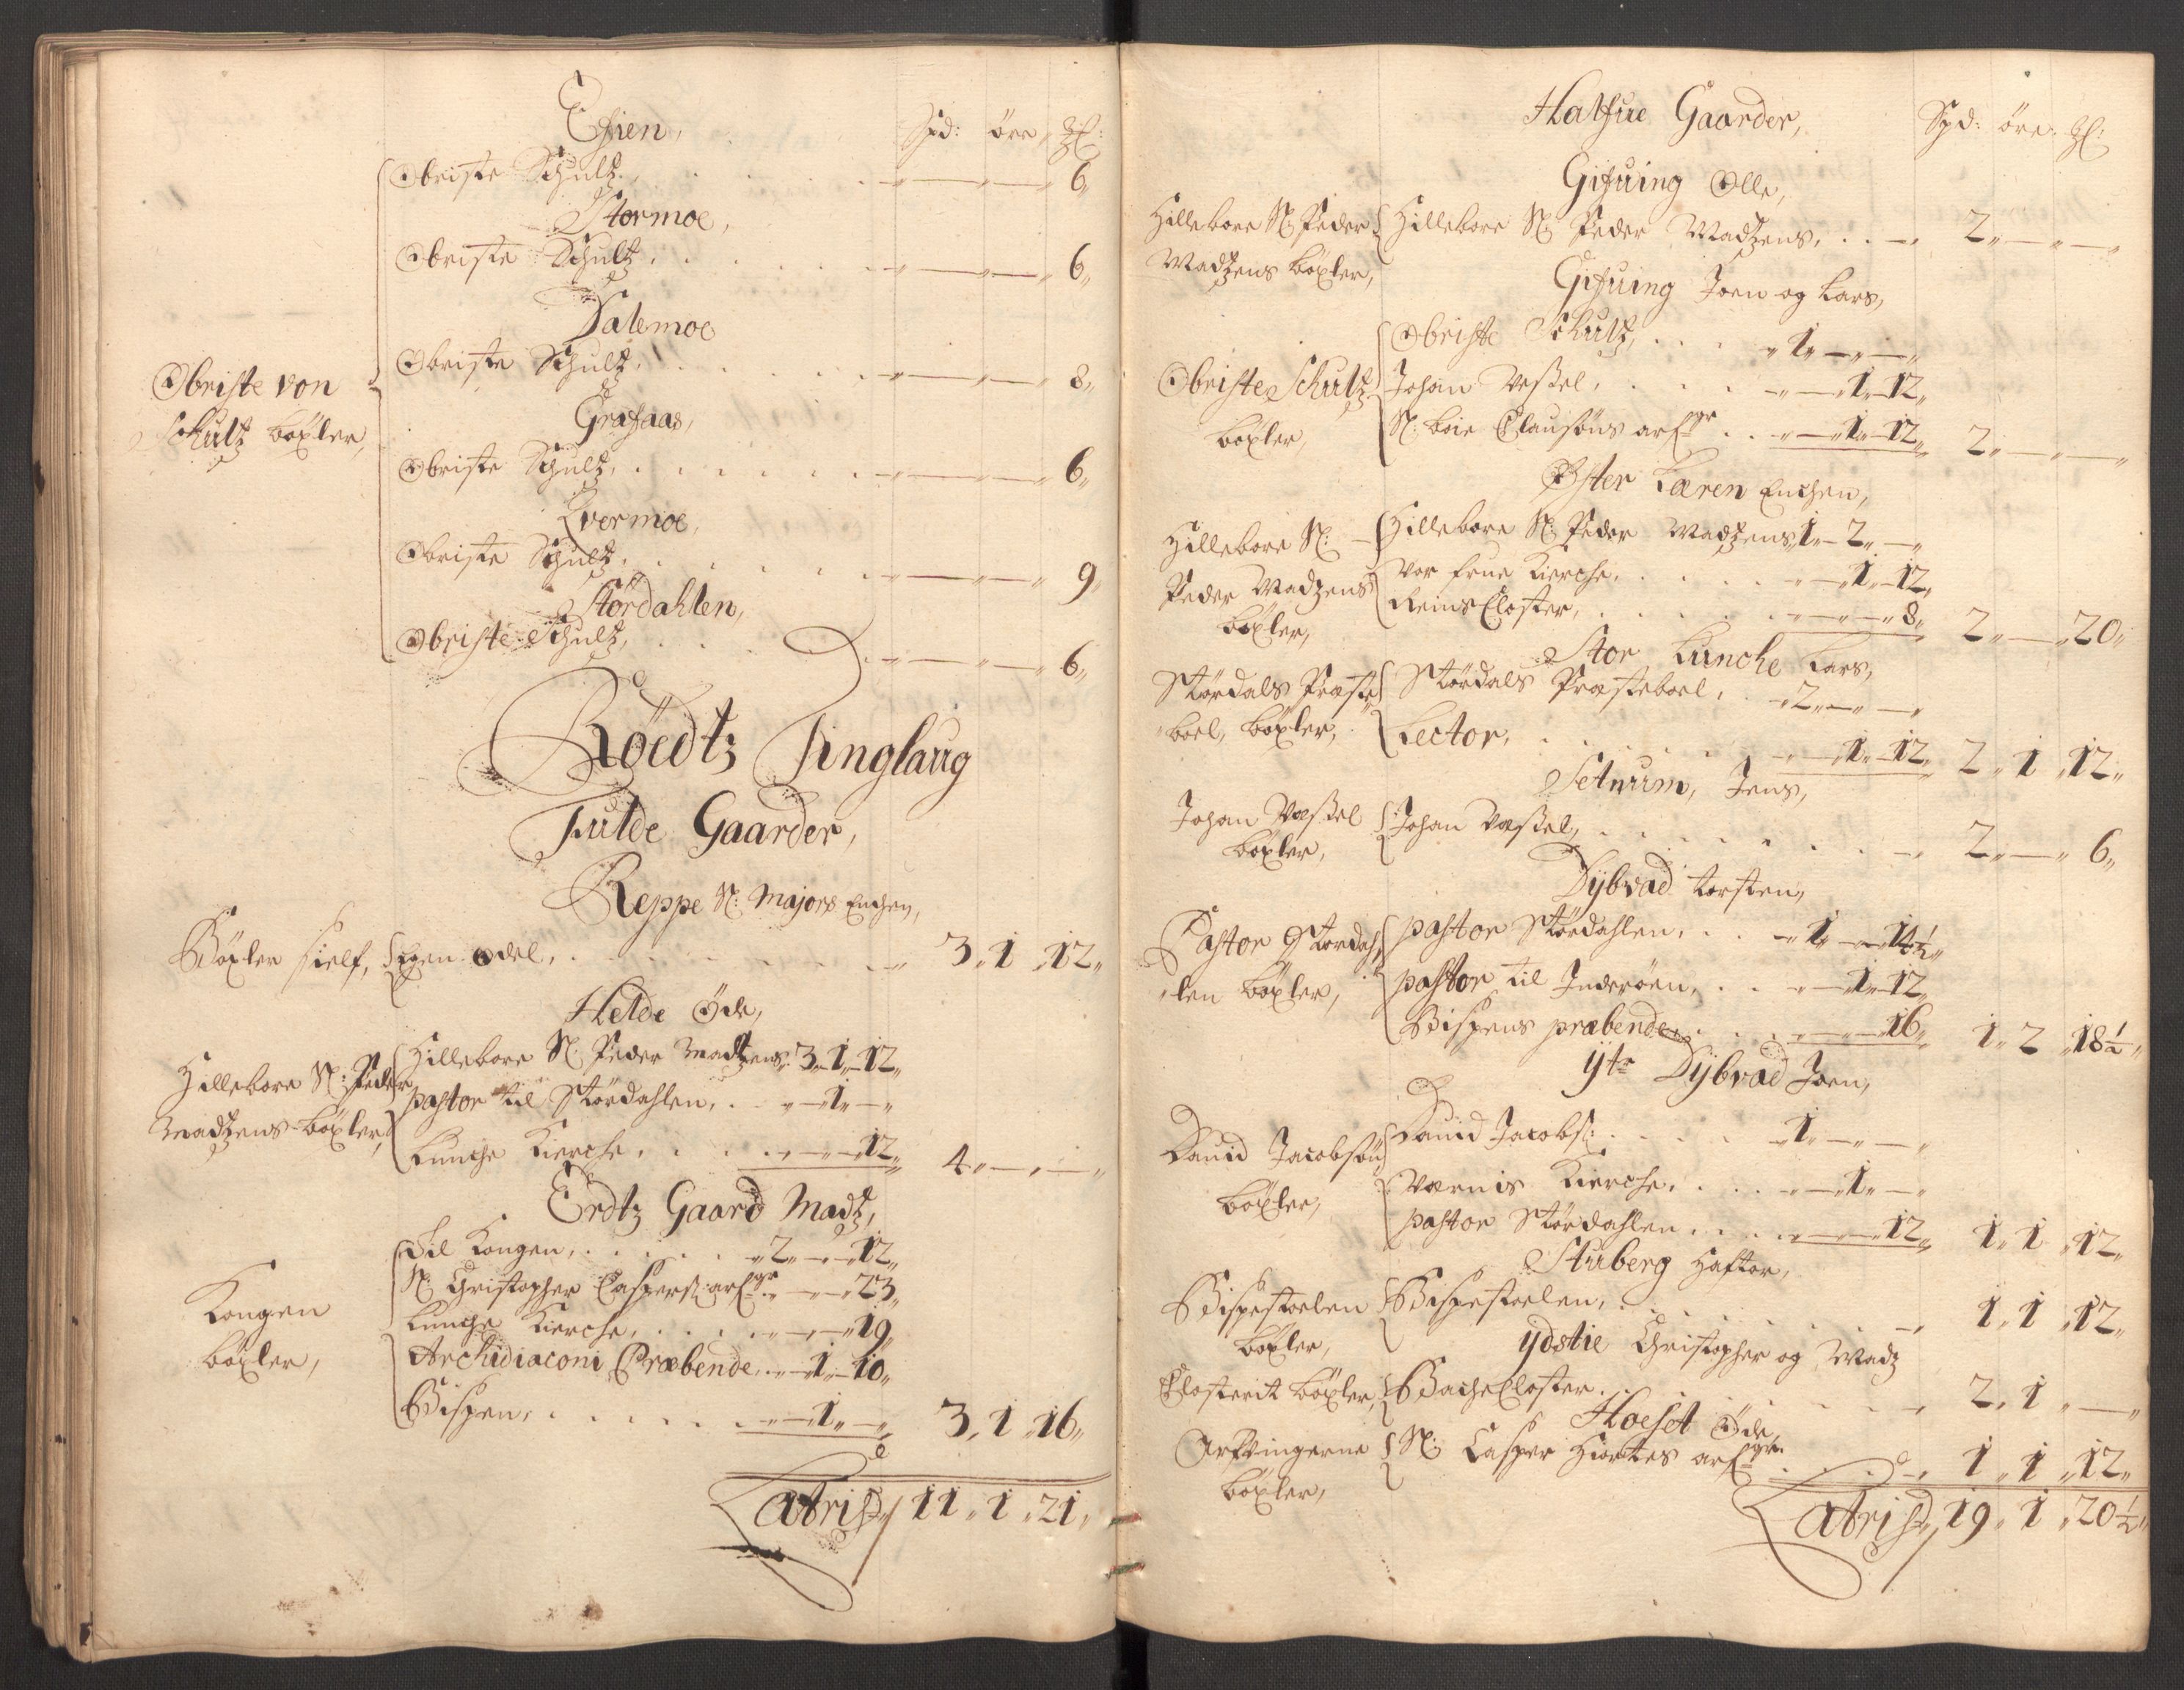 Essien,
Spd: öre, ßl:
Obriste Schultz, . . . . . 6,,
Stormoe,
Obriste Schultz, . . . . . 6,,
Dalemoe
Obriste Schultz, . . . . . 8,,
Obriste von
Schultz böxler,
Grafaas,
Obriste Schultz, . . . . . 6,,
Kvermoe,
Obriste Schultz, . . . . . 9,,
Stördahlen,
Obriste Schultz, . . . . . 6,,
Röedtz Tinglaug
Fulde Gaarder,
Reppe Sl: Majors Enchen,
Böxler sielf, Egen odel, . . . . . 3,, 1,, 12,,
Helde Öde,
Hillebore Sl: Peder
Madtzens böxler,
Hillebore Sl: Peder Madtzens 3,, 1,, 12,,
pastor til Stördahlen, . . 1,, —
Lunche Kierche, . . . 12,, 4,, — —
Erdtz Gaard Madtz,
Kongen
böxler,
Til Kongen, . . . . 2,, — 12,,
Sl: Christopher Caspers: arfgr — 23,,
Lunche Kierche, . . . . 19,,
Archidiaconi Præbende, . 1,, 10,,
Bispen, . . . . . 1,, — 3,, 1,, 16,,
Latris 11,, 1,, 21,,
Halfue Gaarder,
Spd: öre: ßl:
Gifuing Olle,
Hillebore Sl: Peder
Madtzens böxler,
Hillebore Sl: Peder Madtzens, . . 2,, — —
Gifuing Joen og Lars,
Obriste Schultz
böxler,
Obriste Schultz, . . . 1,, — —
Johan Vessel, . . . . 1,, 12,,
Sl: boie Clausöns arfgr . . 1,, 12,, 2,, — —
Öfter Kæren Enchen,
Hillebore Sl:
Peder Madtzens
böxler,
Hillebore Sl: Peder Madtzens, 1,, 2,, —
Vor frue Kierche, . . . . 1,, 12,,
Reins Closter, . . . . . 8,, 2,, — 20,,
Stor Lunche Lars,
Stördals Præste
boel, böxler,
Stördals Præsteboel, . 2,, — —
Lector, . . . . . 1,, 12,, 2,, 1,, 12,,
Setnum, Jens,
Johan Væssel
böxler,
Johan Væssel, . . . . . 2,, — 6,,
Dybvad Torsten,
Pastor Stördah,,
,,len böxler,
pastor Stördahlen, . . 1,, — 14½,,
pastor til Inderöen, . . 1,, 12,,
Bispens præbende . . . 16,, 1,, 2,, 18½,,
Ytr Dybvad Joen,
David Jacobsön
böxler,
David Jacobs: . . . . 1,, — —
Værnis Kierche, . . . 1,, —
pastor Stördahlen, . . . 12,, 1,, 1,, 12,,
Stuberg Haftor,
Bispestoelen
böxler,
Bispestoelen, . . . . 1,, 1,, 12,,
Ydstie Christopher og Madz
Closterit böxler, Bache Closter . . . 2,, 1,, —
Hoeset Öde,
Arfvingerne
böxler,
Sl: Casper Hiortes arfgr. . . . 1,, 1,, 12,,
Latris 19,, 1,, 20½,,